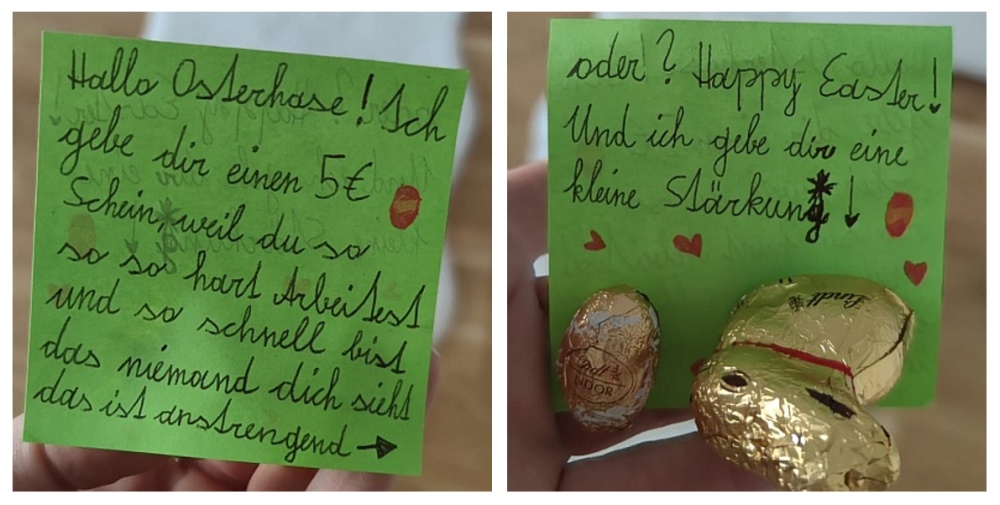 Hallo Osterhase! Ich
gebe dir einen 5€
Schein, weil du so
so so hart Arbeitest
und so schnell bist
das niemand dich sieht
das ist anstrengend →
oder? Happy Easter!
Und ich gebe dir eine
kleine Stärkung ↓
Lindt